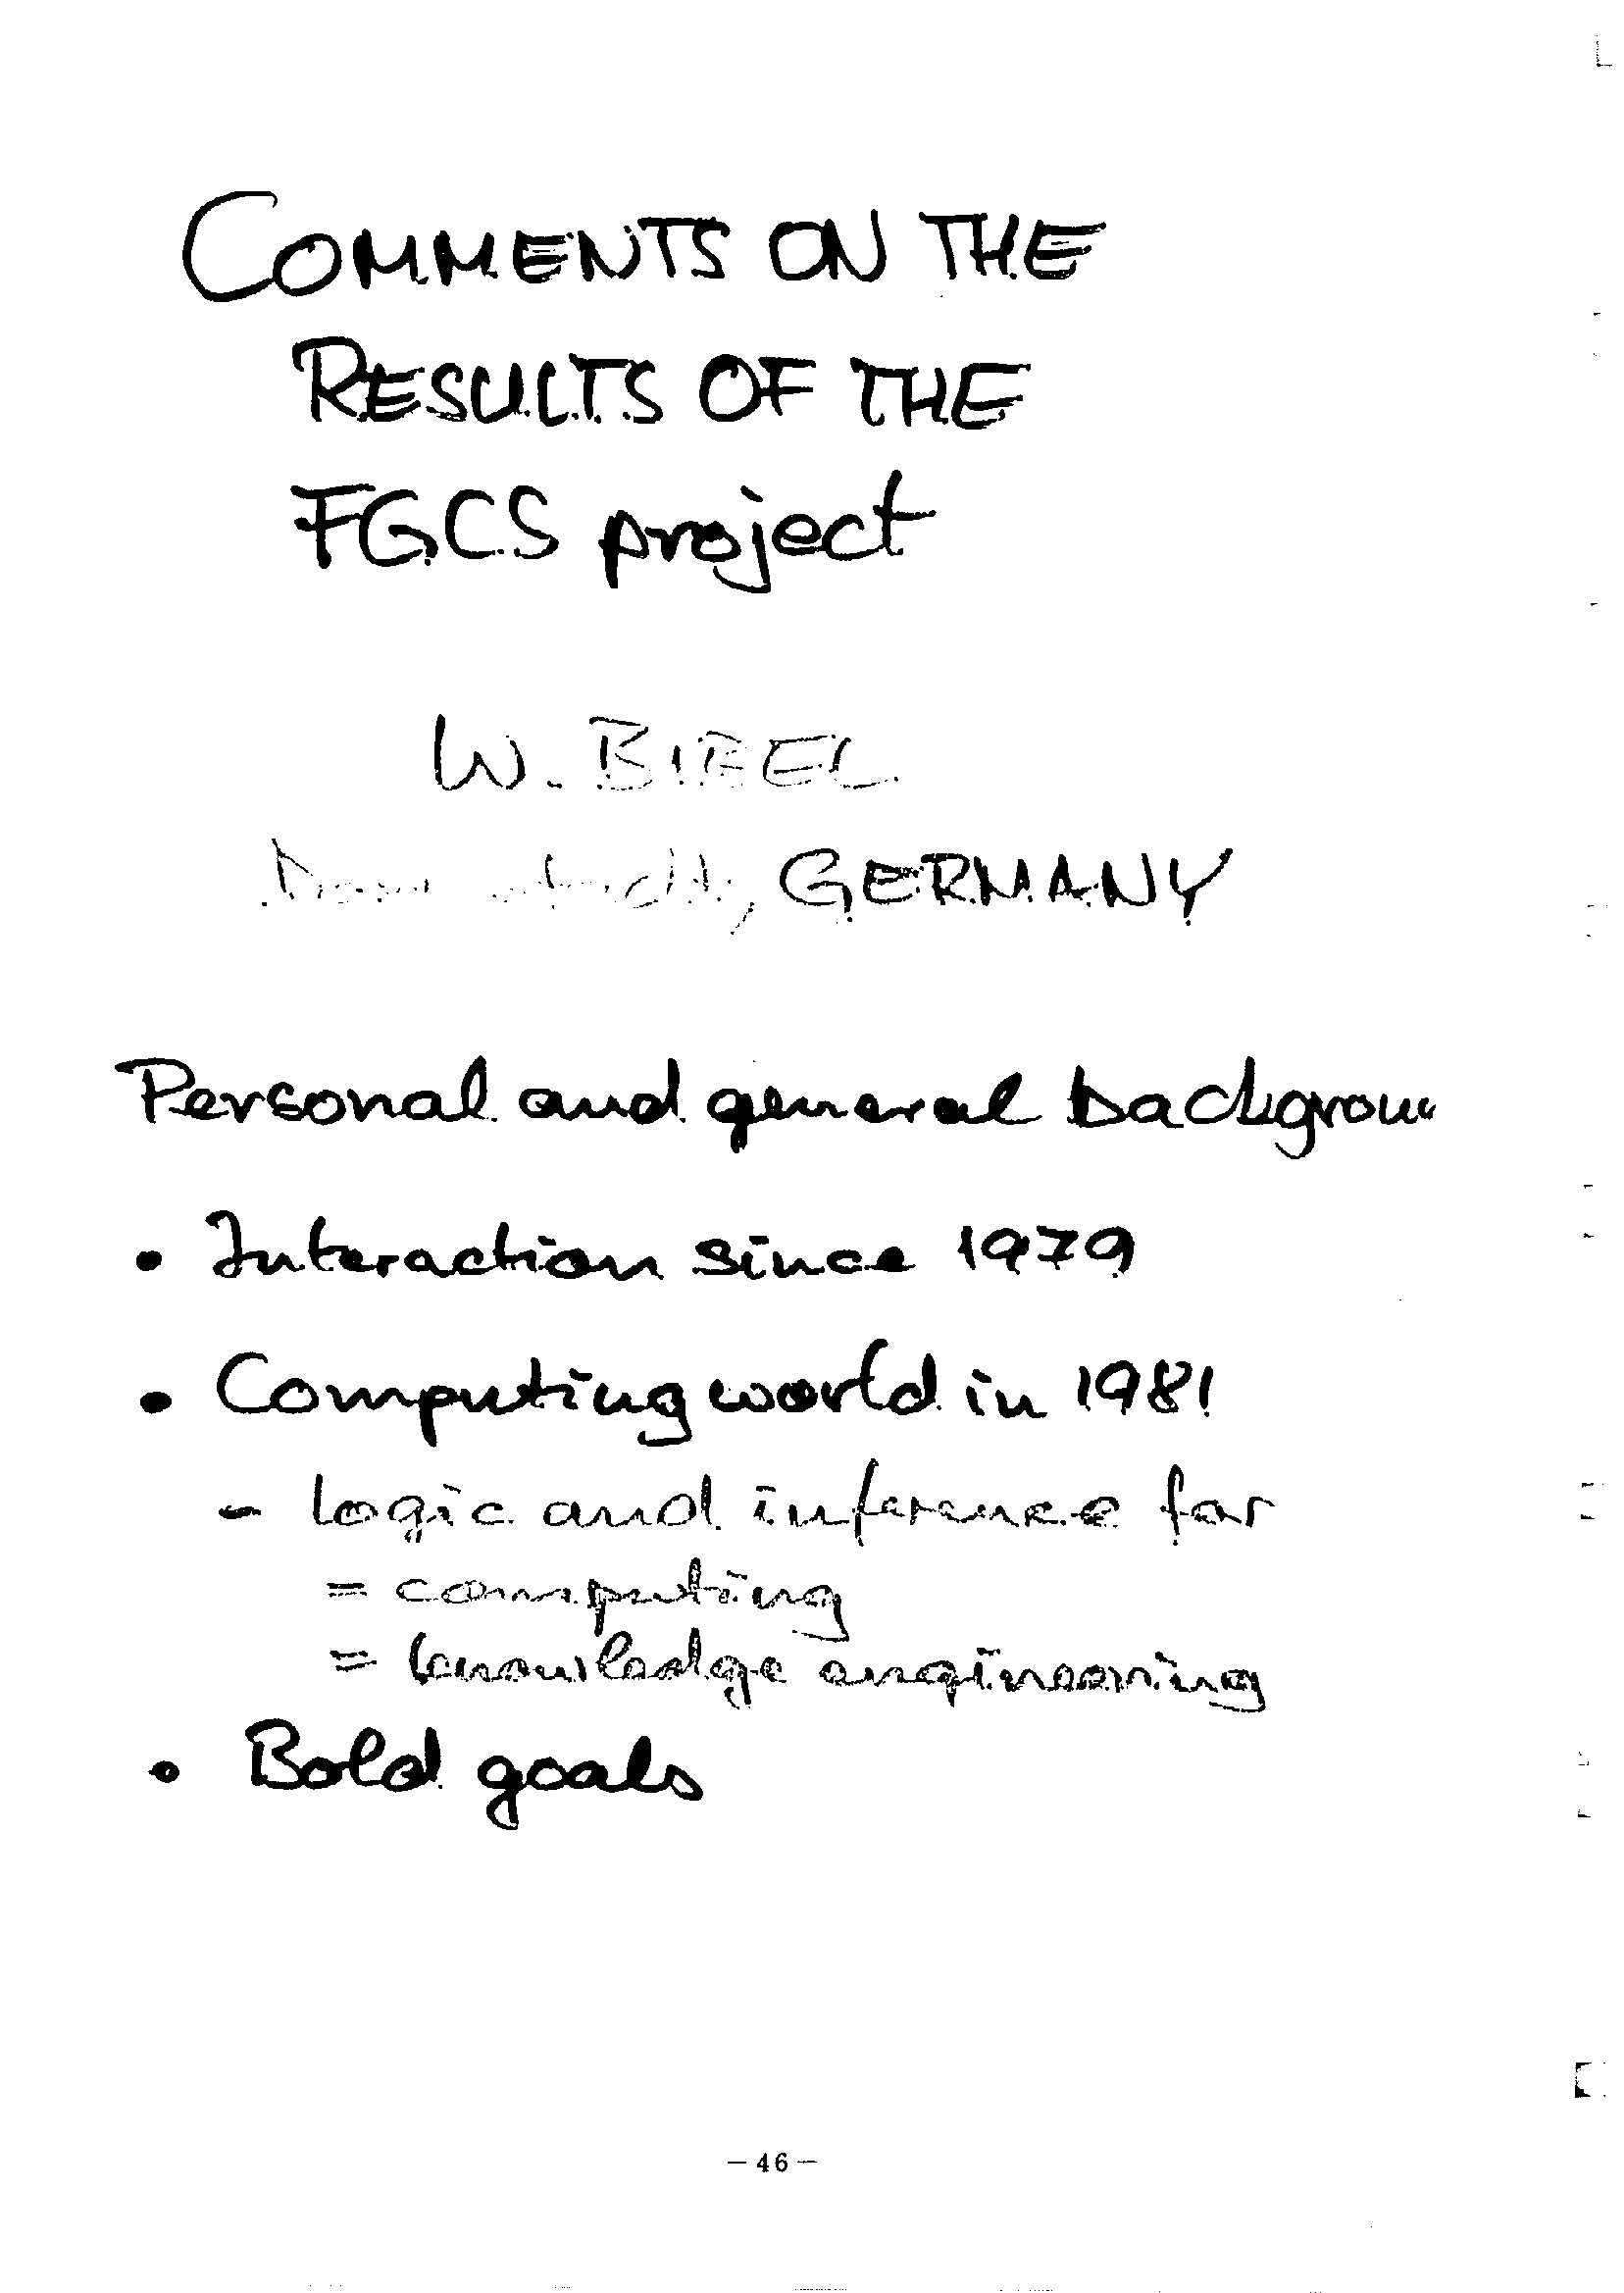 COMMENTS ON THE
RESULTS OF THE
FGCS project
W. BIBEL
Darmstadt, GERMANY
Personal and general backgrou
• Interaction since 1979
• Computing world in 1981
- logic and inference for
= computing
= knowledge engineering
• Bold goals
- 46 -